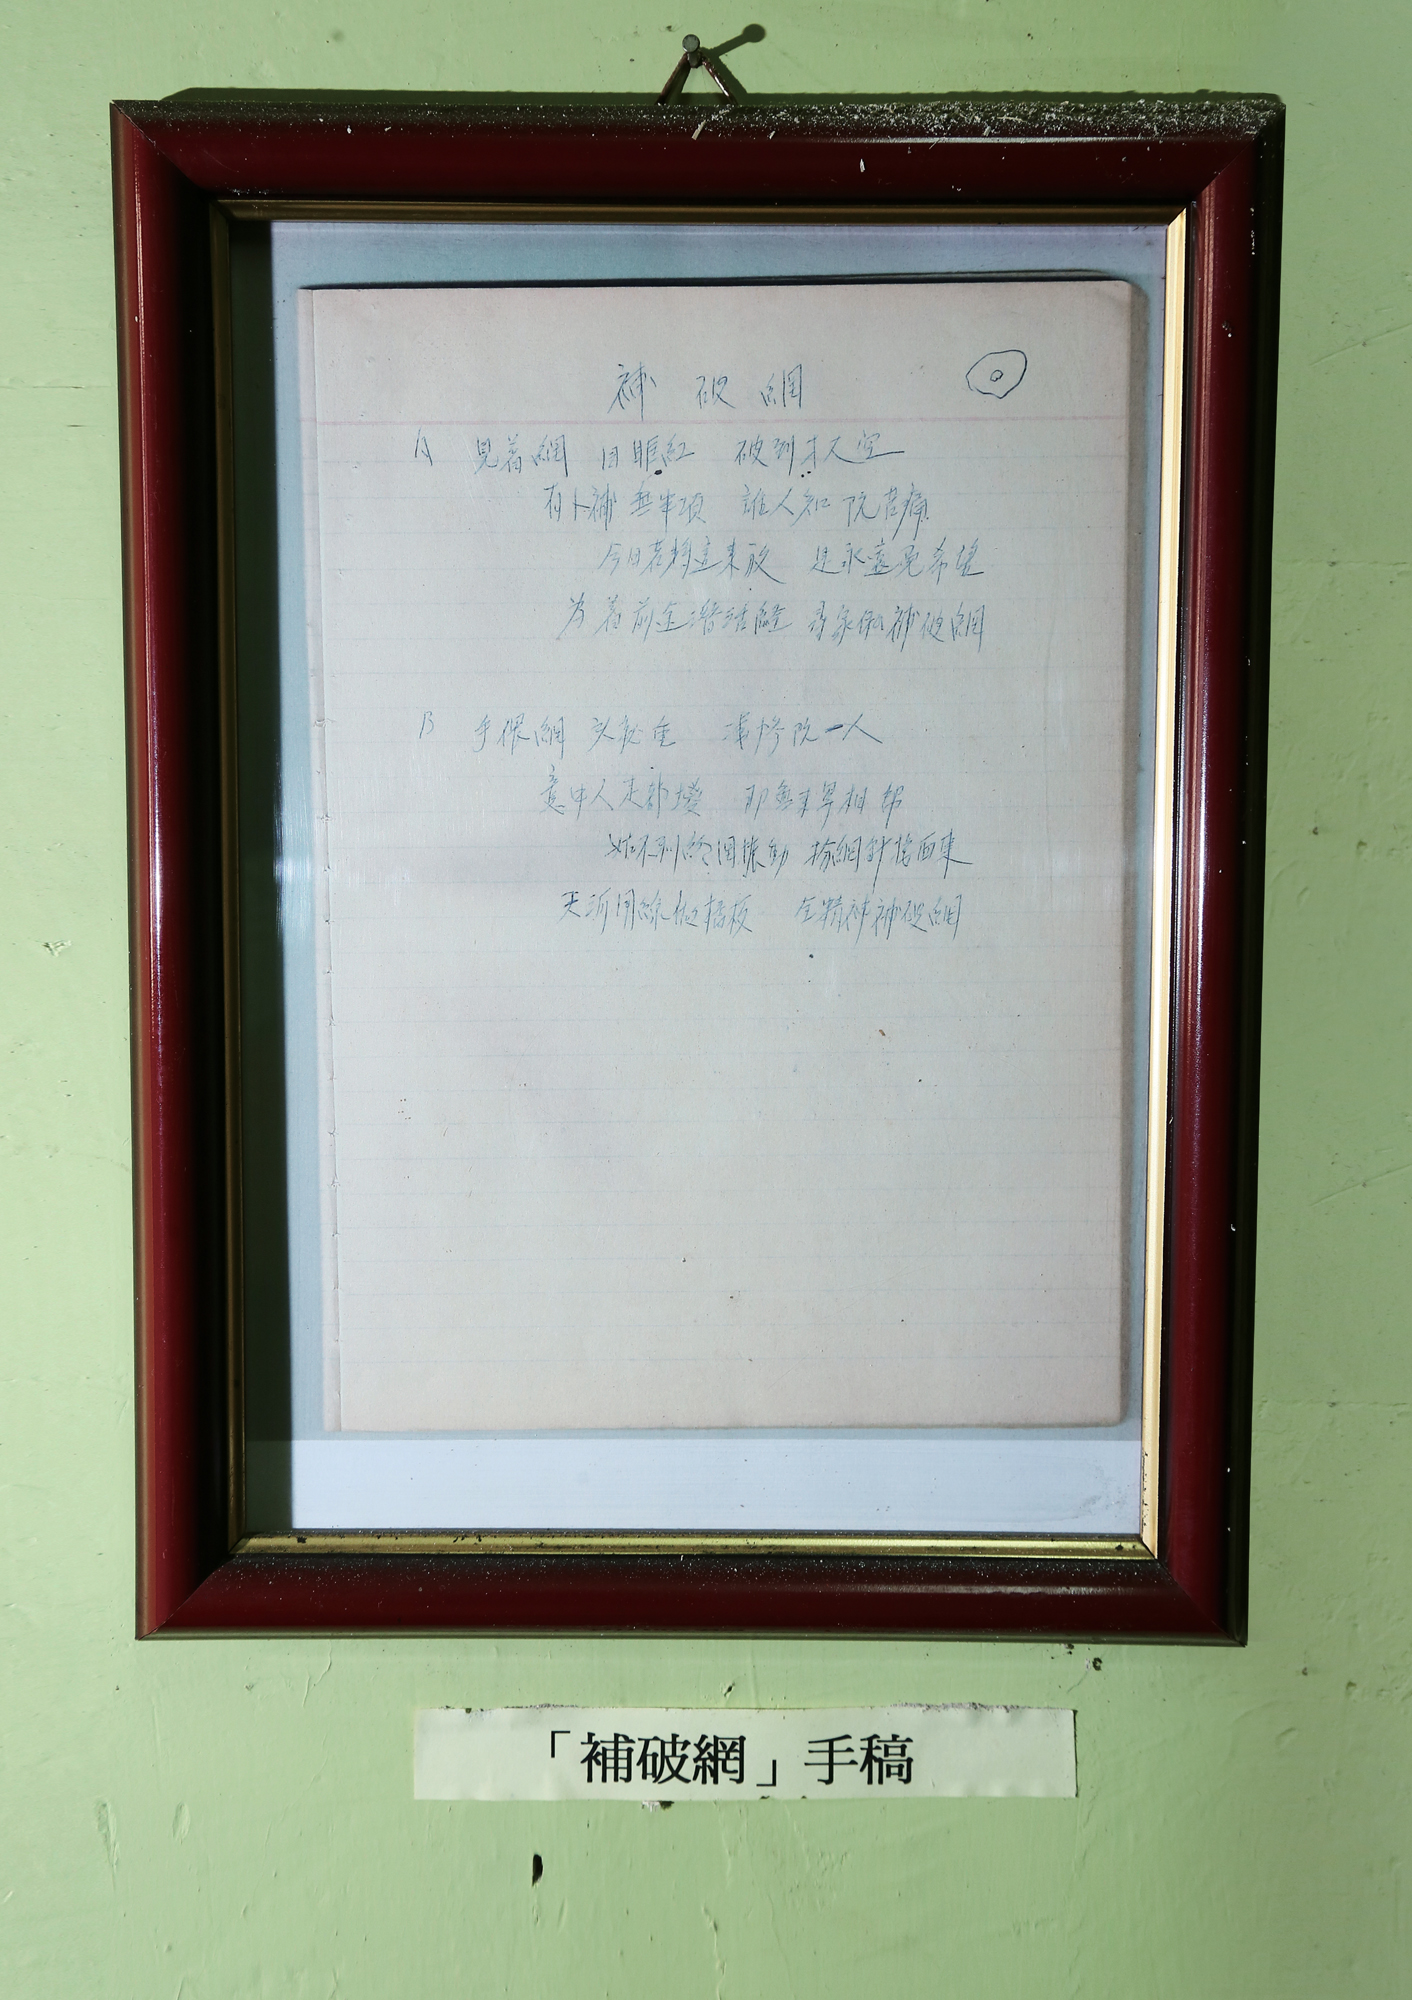 補 破 網
A 見著網 目眶紅 破到才大空
有卜補 無半項 誰人知 阮苦痛
今日若將這來放 是永遠免希望
為著前途潛活縫 尋家俬補破網
B 手偎網 頭就重 悽慘阮一人
意中人走叨藏 那無來鬥相帮
姑不利終罔振動 拎網針接西東
天河用線做橋板 全精神補破網
「補破網」手稿